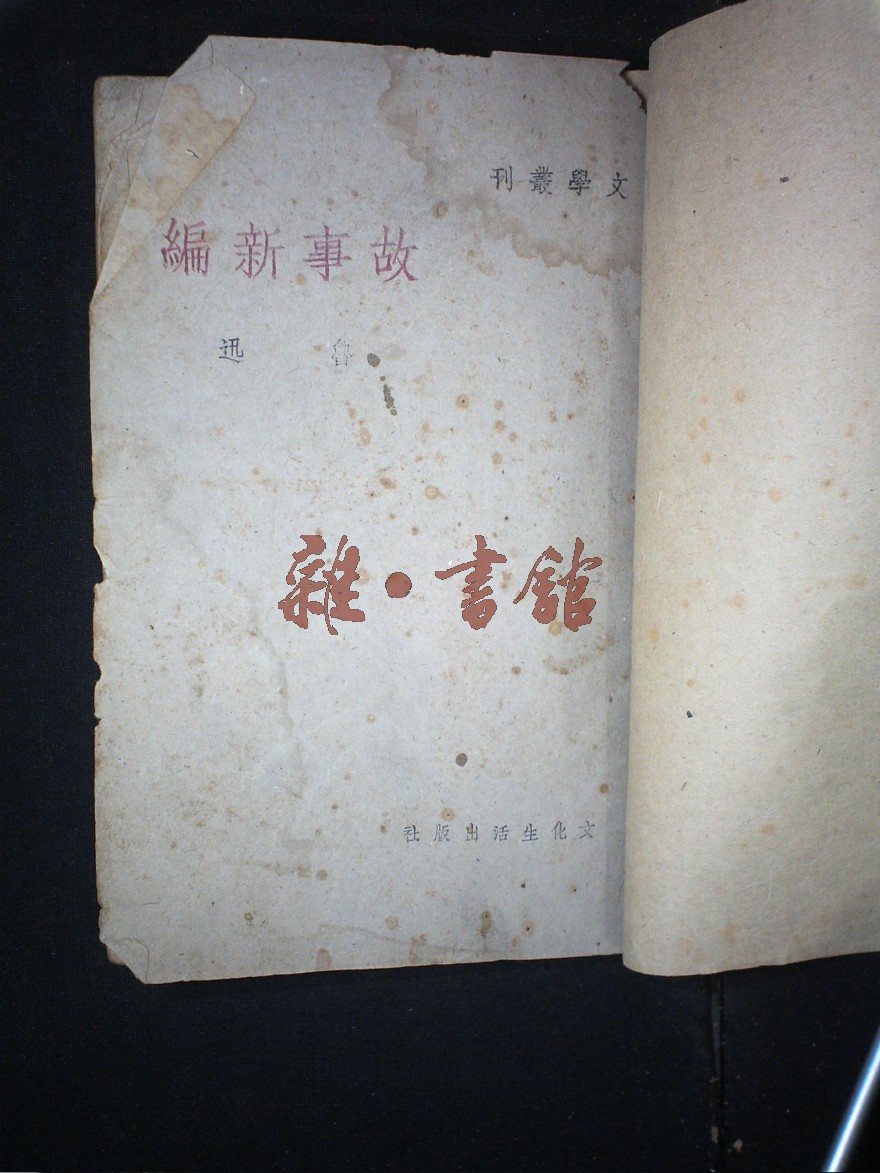 文學叢刊
故事新編
魯迅
雜·書館
文化生活出版社